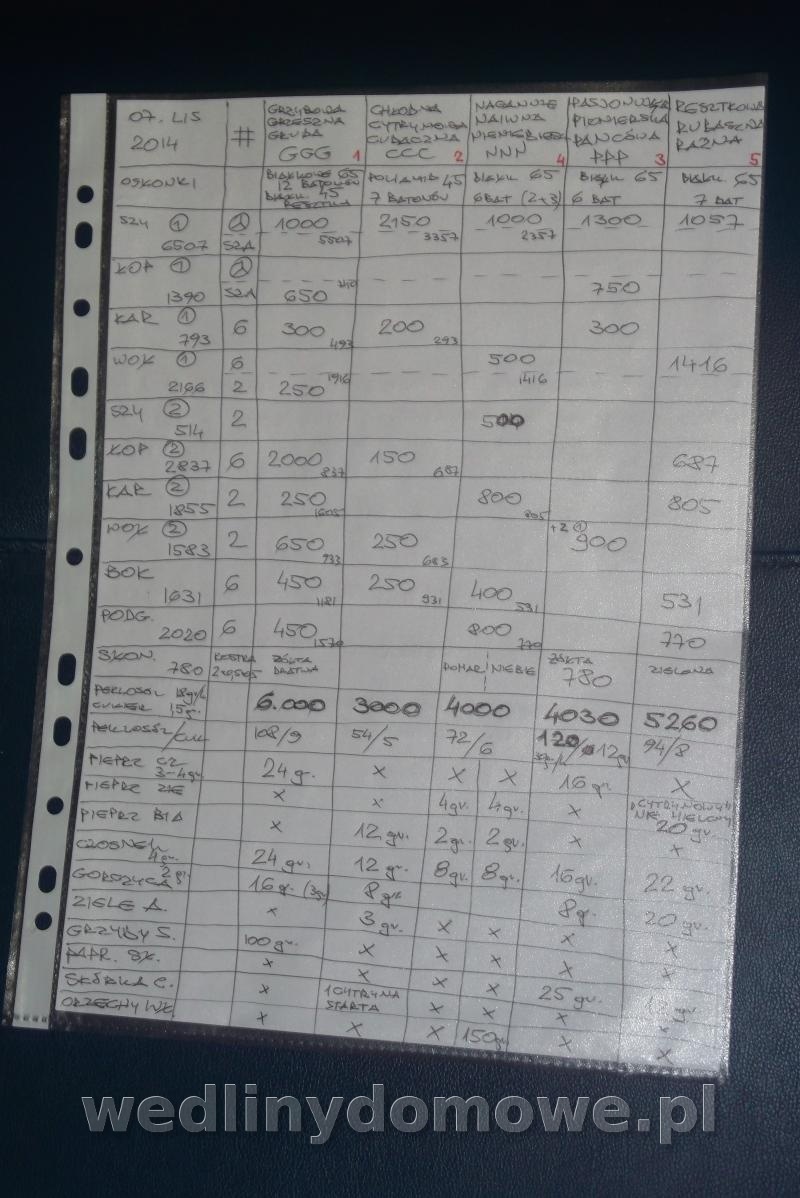 07. LIS
2014
#
GRZYBOWA GRZESZNA GRUBA GGG 1
CHŁODNA CYTRYNOWA CUDACZNA CCC 2
NAIWNA NNN 4
PIONIERSKA PPP 3
RESZTKOWA RUBASZNA RAŹNA 5
OSŁONKI
BIAŁKOWE 65 12 BATONÓW BIAŁK. 45 RESZTKA
POLIAMID 45 7 BATONÓW
BIAŁK. 65 6 BAT (2+3)
BIAŁK. 65 6 BAT
BIAŁK. 65 7 BAT
SZY 1 6507 2 SZA 1000 5507 2150 3357 1000 2357 1300 1057
ŁOP 1 1390 2 SZA 650 740 750
KAR 1 793 6 300 493 200 293 300
WOŁ 1 2166 6 2 250 1916 500 1416 1416
SZY 2 514 2 500
ŁOP 2 2837 6 2000 837 150 687 687
KAR 2 1855 2 250 1605 800 805 805
WOŁ 2 1583 2 650 933 250 683 +2 1 900
BOK 1631 6 450 1181 250 931 400 531 531
PODG. 2020 6 450 1570 800 770 770
SKÓN. 780 ŻÓŁTA POMAR NIEBIE ŻÓŁTA 780 ZIELONA
PEKLOSÓL 18gr/k
CUKIER 1,5g.
6.000 3000 4000 4030 5260
PEKLOSÓL/CUK 108/9 54/5 72/6 120/12gr 94/8
PIEPRZ CZ 3-4gr 24 g. x x x 16 gr. x
PIEPRZ ZIE x x 4gr. 4gr. x 20 gr.
PIEPRZ BIA x 12 gr. 2gr. 2gr. x x
CZOSNEK 4gr. 24 gr. 12 gr. 8gr. 8gr. 16gr. 22 gr.
GORCZYCA 2gr. 16 g. (3gr) 8gr. 8g. 20 gr.
ZIELE A. x 3 gr. x x x x
GRZYBY S. 100 gr. x x x x x
PAPR. SŁ. x x x x 25 gr.
SKÓRKA C. x 1 CYTRYNA STARTA x x x x
ORZECHY WŁ. x x x 150gr x x
wedlinydomowe.pl